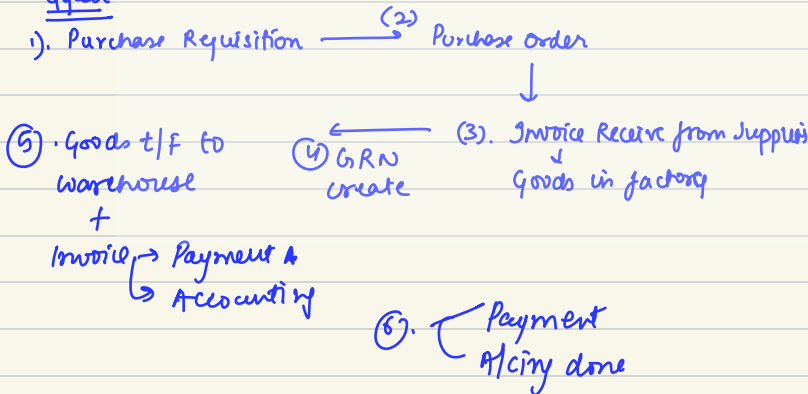 1). Purchase Requisition
(2)
Purchase order
(3). Invoice Receive from
Goods in factory
(4) GRN
create
(5). Goods t/f to
warehouse
+
Invoice → Payment &
Accounting
(6). Payment
A/cing done